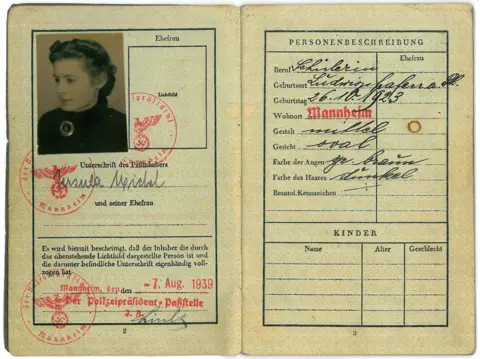 Ehefrau
Lichtbild
Unterschrift des Paßinhabers
Ursula
und seiner Ehefrau
Es wird hiermit bescheinigt, daß der Inhaber die durch
das obenstehende Lichtbild dargestellte Person ist und
die darunter befindliche Unterschrift eigenhändig voll-
zogen hat
Mannheim, den den -7. Aug. 1939
Der Polizeipräsident-Paßstelle
J. A.
2
PERSONENBESCHREIBUNG
Ehefrau
Beruf Schülerin
Geburtsort Ludwigshafen a. Rh.
Geburtstag 26.10.1923
Wohnort Mannheim
Gestalt mittel
Gesicht oval
Farbe der Augen gr. braun
Farbe des Haares dunkel
Besond. Kennzeichen
KINDER
Name Alter Geschlecht
3